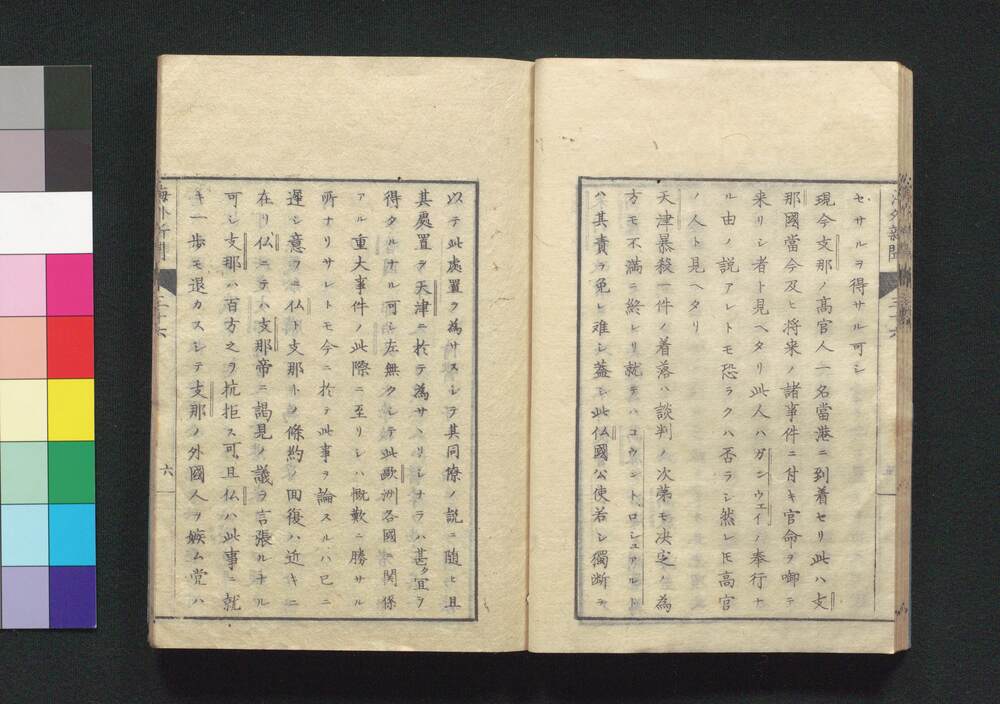 セサルヲ得サル可シ
現今支那ノ高官人一名當港ニ到着セリ此ハ支
那國當今及ヒ将来ノ諸事件ニ付キ官命ヲ啣テ
来リシ者ト見ヘタリ此人ハガンウェイノ奉行ナ
ル由ノ説アレトモ恐ラクハ否ラシ然レ𪜈高官
ノ人ト見ヘタリ
天津暴殺一件ノ着落ハ談判ノ次第モ决定セ為
方モ不満ニ終レリ就テハコウントロシュアルト
ハ其責ヲ免レ難シ蓋シ此仏國公使若シ獨断ヲ
以テ此處置ヲ為サスシテ其同僚ノ説ニ随ヒ且
其處置ヲ天津ニ於テ為サヽリシナラハ甚タ宜ヲ
得タルナル可シ左無クシテ此歐洲各國ニ関係
アル重大事件ノ此際ニ至リシハ慨歎ニ勝サル
所ナリサレトモ今ニ於テ此事ヲ論スルハ已ニ
遅シ意フニ仏ト支那トノ條約ノ回復ハ近キニ
在リ仏ニテハ支那帝ニ謁見ノ議ヲ言張ルナル
可シ支那ハ百方之ヲ抗拒ス可且仏ハ此事ニ就
キ一歩モ退カスシテ支那ノ外國人ヲ嫉ム党ハ
海外新聞 三十六 六